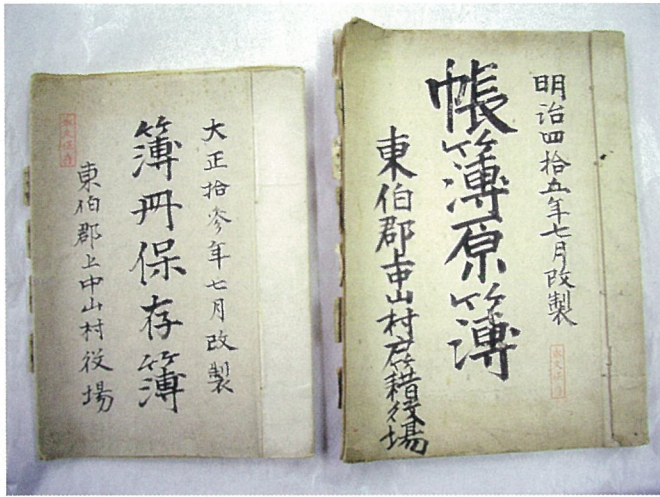 明治四拾五年七月改製
帳簿原簿
東伯郡上中山村戸籍役場
永久保存
大正拾参年七月改製
簿冊保存簿
東伯郡上中山村役場
永久保存